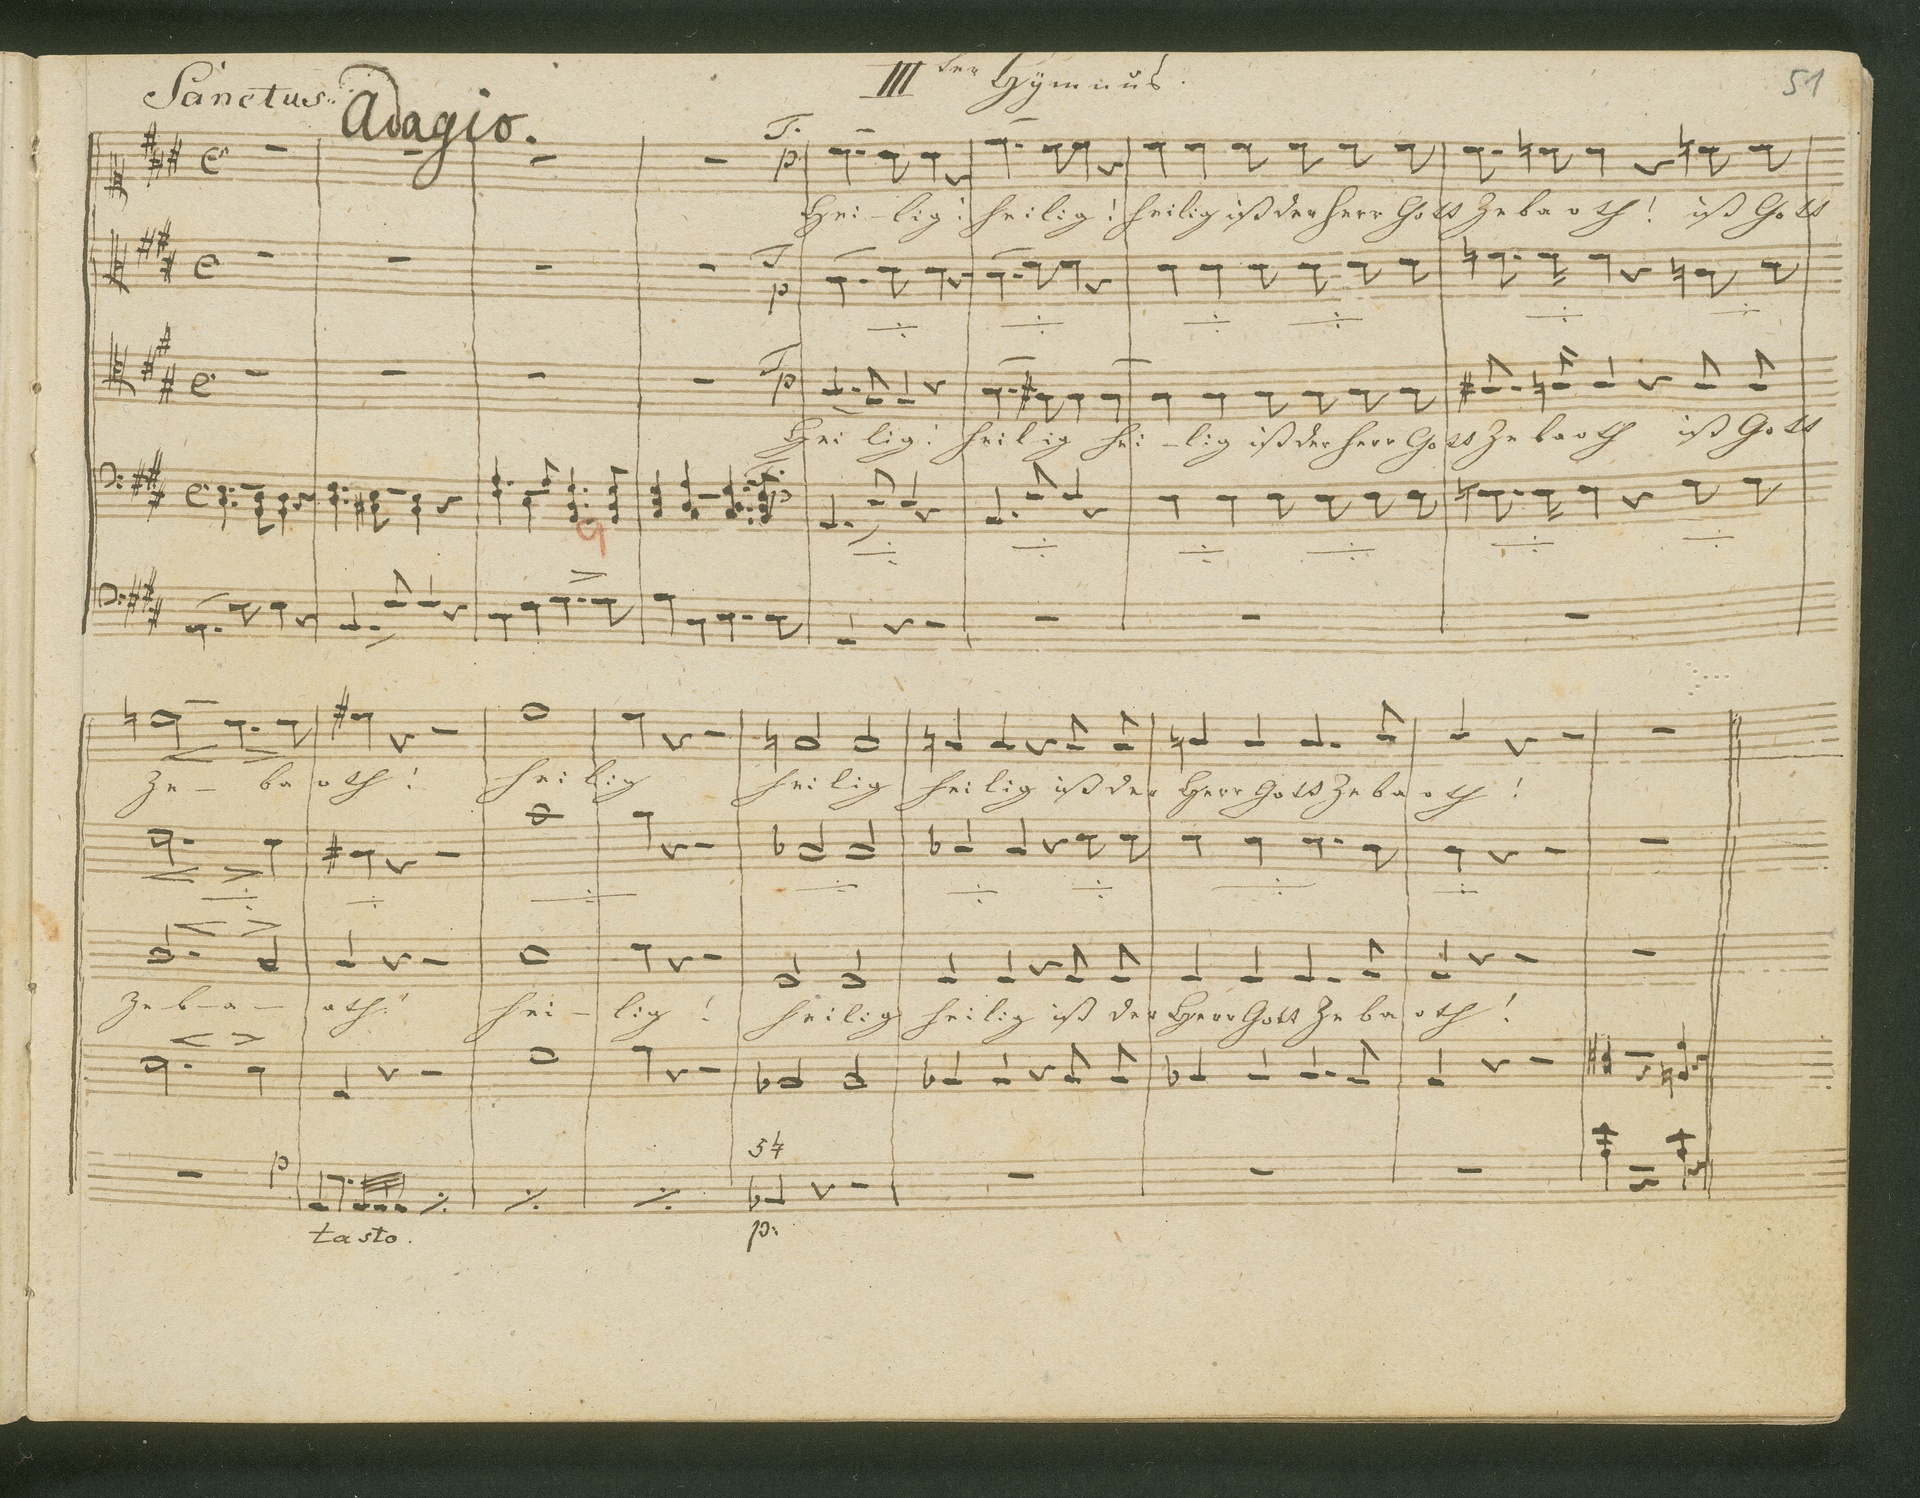 Sanctus. Adagio. IIIter Hÿmnus. 51
T. p
Hei-lig! heilig! heilig ist der Herr Gott Zebaoth! ist Gott
T p
T p
Hei lig! heilig hei-lig ist der Herr Gott Zebaoth ist Gott
p
Ze- ba oth! heilig heilig heilig ist der Herr Gott Zeba oth!
Zeb-a- oth! hei-lig! heilig heilig ist der Herr Gott Zeba oth!
p
tasto. p: